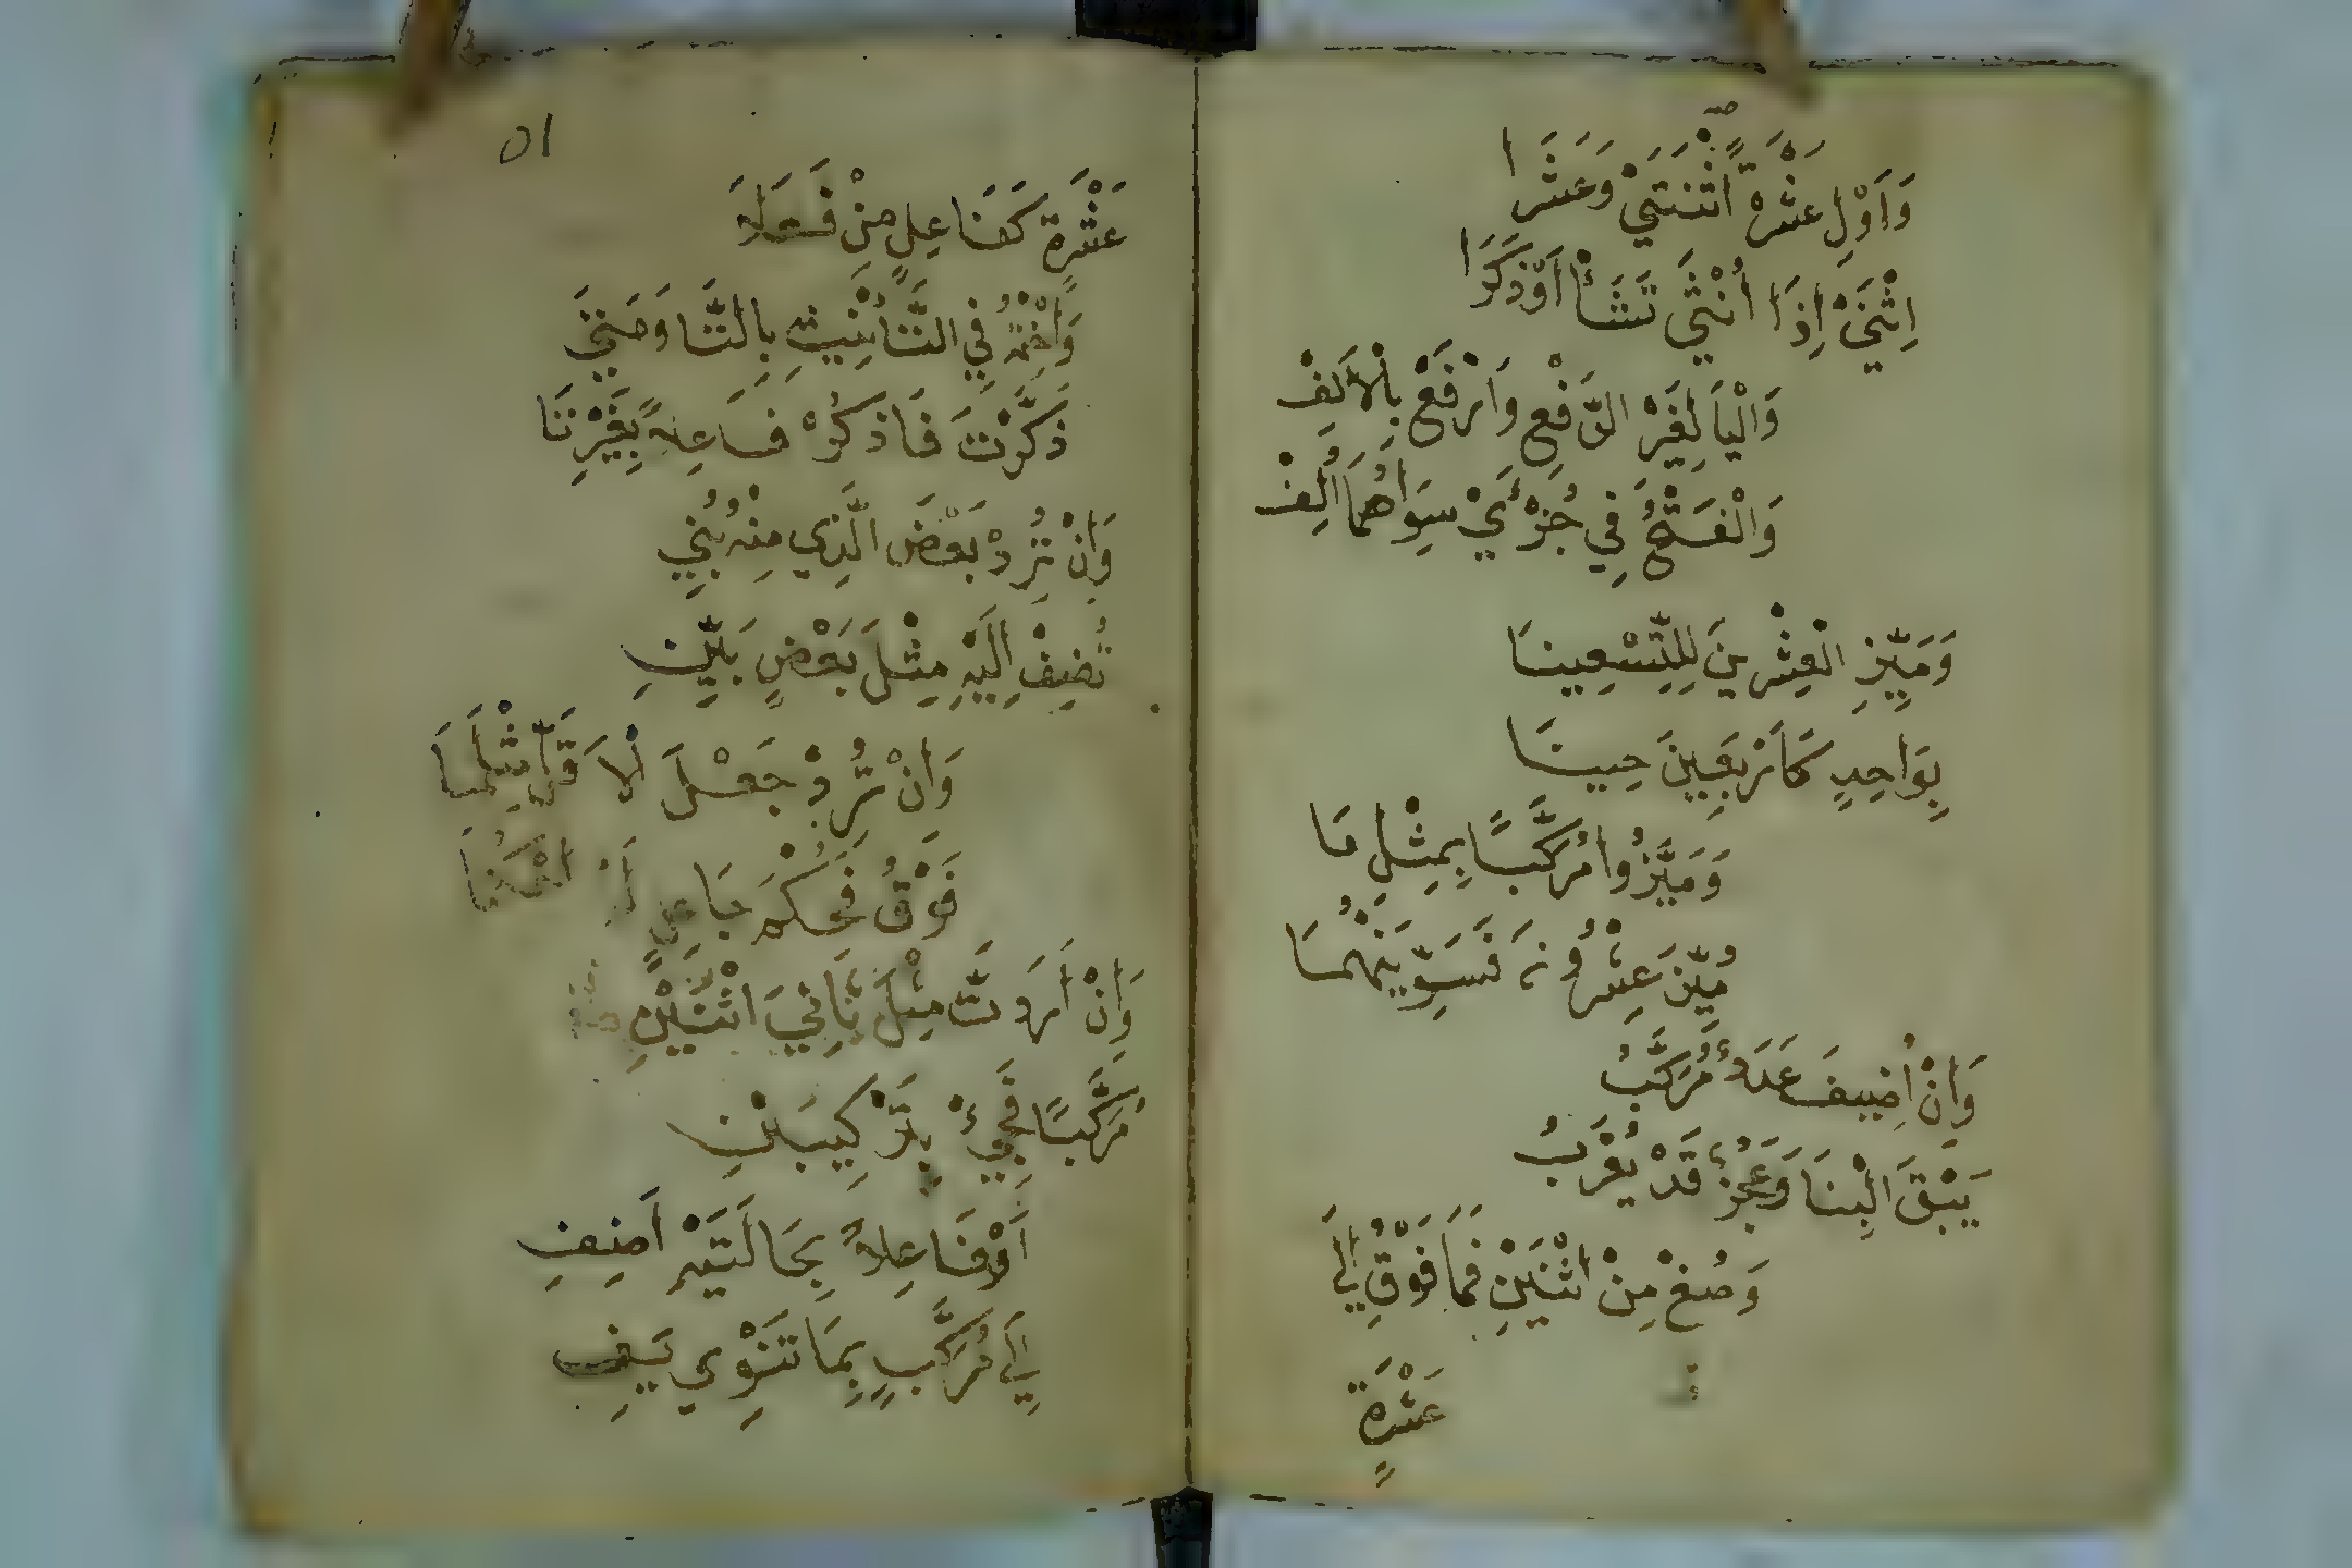 وَأَوْلِ عَشْرَةَ اثْنَتَيْ وَعَشْرَا
اِثْنَيْ إِذَا أُنْثَى تَشَأْ أَوْ ذَكَرَا
وَالْيَا لِغَيْرِ الرَّفْعِ وَارْفَعْ بِالْأَلِفْ
وَالْفَتْحُ فِي جُزْئَيْ سِوَاهُمَا أُلِفْ
وَمَيِّزِ الْعِشْرِينَ لِلتِّسْعِينَا
بِوَاحِدٍ كَأَرْبَعِينَ حِينَا
وَمَيَّزُوا مُرَكَّبًا بِمِثْلِ مَا
مُيِّزَ عِشْرُونَ فَسَوِّيَنْهُمَا
وَإِنْ أُضِيفَ عَدَدٌ مُرَكَّبُ
يَبْقَ الْبِنَا وَعَجُزٌ قَدْ يُعْرَبُ
وَصُغْ مِنْ اثْنَيْنِ فَمَا فَوْقُ إِلَى
عَشْرَةٍ
٥١
عَشْرَةٍ كَفَاعِلٍ مِنْ فَعَلَا
وَاخْتِمْهُ فِي التَّأْنِيثِ بِالتَّا وَمَتَى
ذَكَّرْتَ فَاذْكُرْ فَاعِلًا بِغَيْرِ تَا
وَإِنْ تُرِدْ بَعْضَ الَّذِي مِنْهُ بُنِي
تُضِفْ إِلَيْهِ مِثْلَ بَعْضٍ بَيِّنِ
وَإِنْ تُرِدْ جَعْلَ الْأَقَلِّ مِثْلَ مَا
فَوْقُ فَحُكْمَ جَاعِلٍ لَهُ احْكُمَا
وَإِنْ أَرَدْتَ مِثْلَ ثَانِيَ اثْنَيْنِ
مُرَكَّبًا فَجِئْ بِتَرْكِيبَيْنِ
أَوْ فَاعِلًا بِحَالَتَيْهِ أَضِفِ
إِلَى مُرَكَّبٍ بِمَا تَنْوِي يَفِي